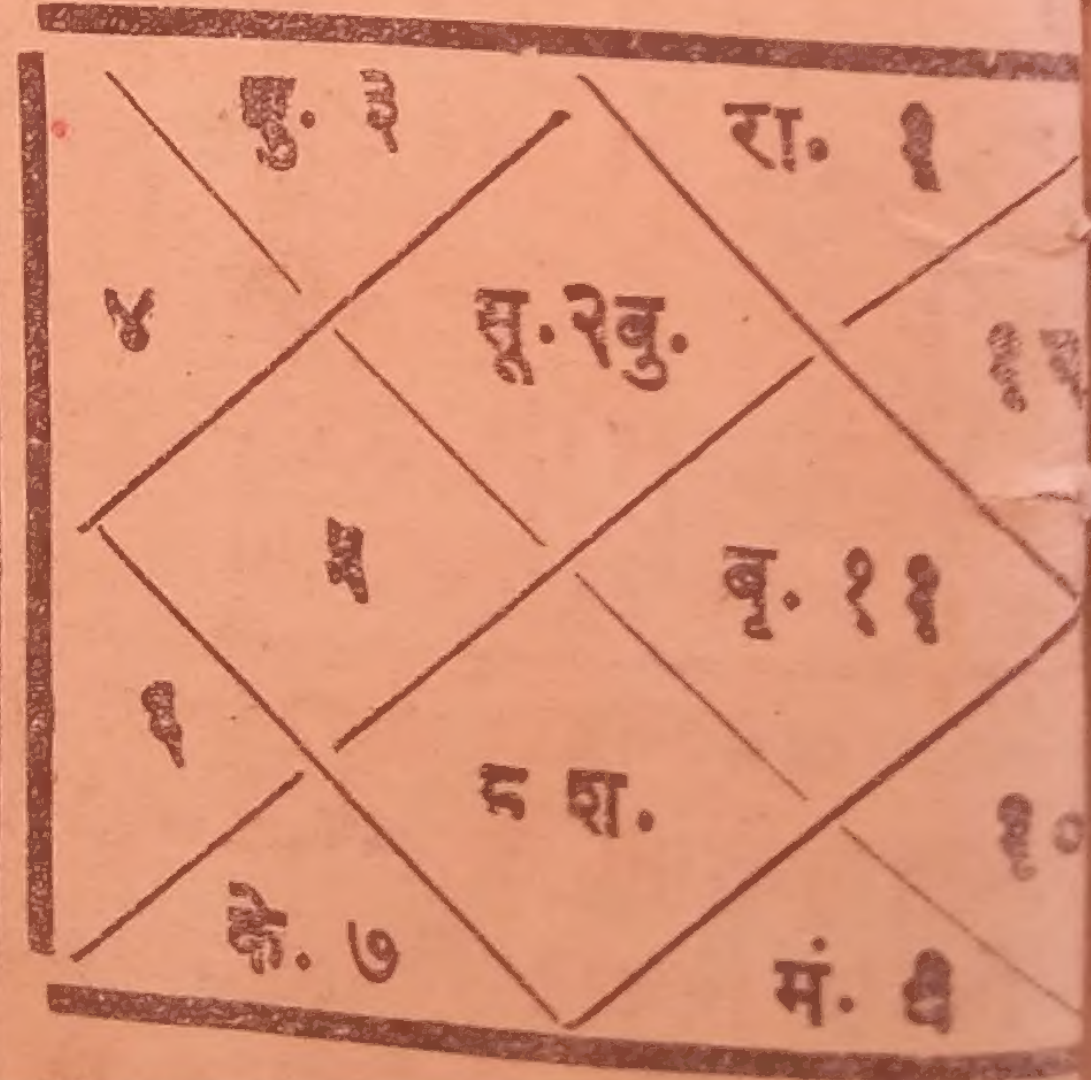 शु. ३
रा. १
सू.२बु.
४
१२
५
बृ. ११
६
८ श.
१०
के. ७
मं. ९